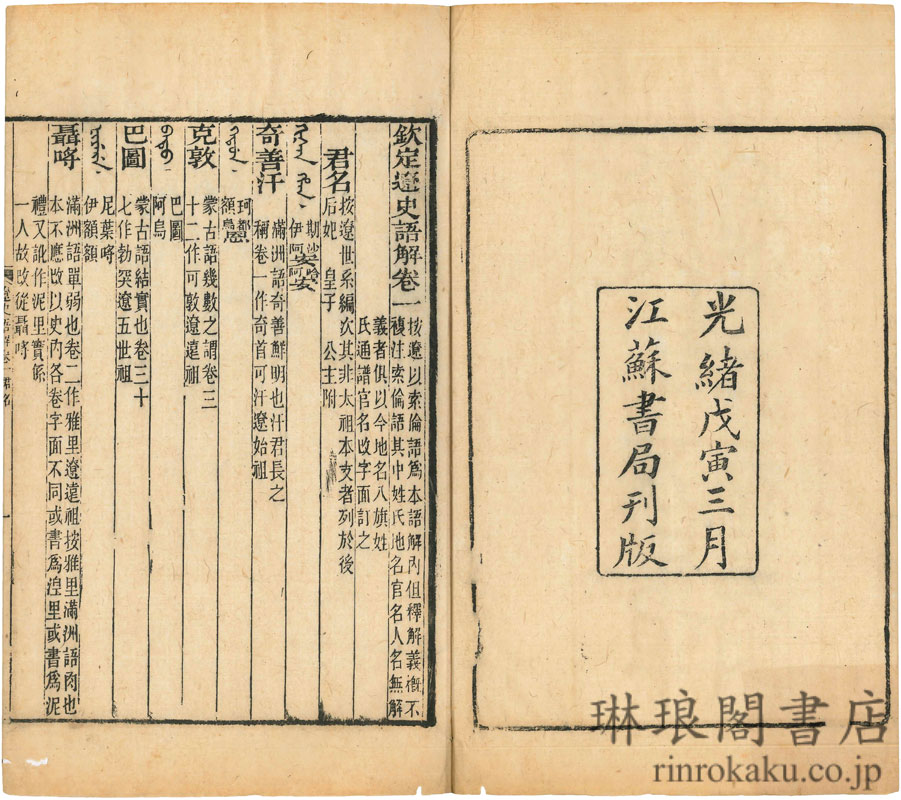 光緒戊寅三月
江蘇書局刊版
欽定遼史語解卷一
按遼以索倫語爲本語解內但釋解義概不
複注索倫語其中姓氏地名官名人名無解
義者俱以今地名八旗姓
氏通譜官名改字面訂之
君名
按遼世系編次其非太祖本支者列於後
后妃 皇子 公主附
期沙哈
伊阿安阿安
奇善汗
滿洲語奇善鮮明也汗君長之
稱卷一作奇首可汗遼始祖
珂都恩
額烏
克敦
蒙古語幾數之謂卷三
十二作可敦遼遠祖
巴圖
阿烏
巴圖
蒙古語結實也卷三十
七作勃突遼五世祖
尼葉哷
伊額額
聶哷
滿洲語單弱也卷二作雅里遼遠祖按雅里滿洲語肉也
本不應改以史內各卷字面不同或書爲湼里或書爲泥
禮又訛作泥里實係
一人故改從聶哷
遼史語解卷一 君名
一
琳琅閣書店
rinrokaku.co.jp